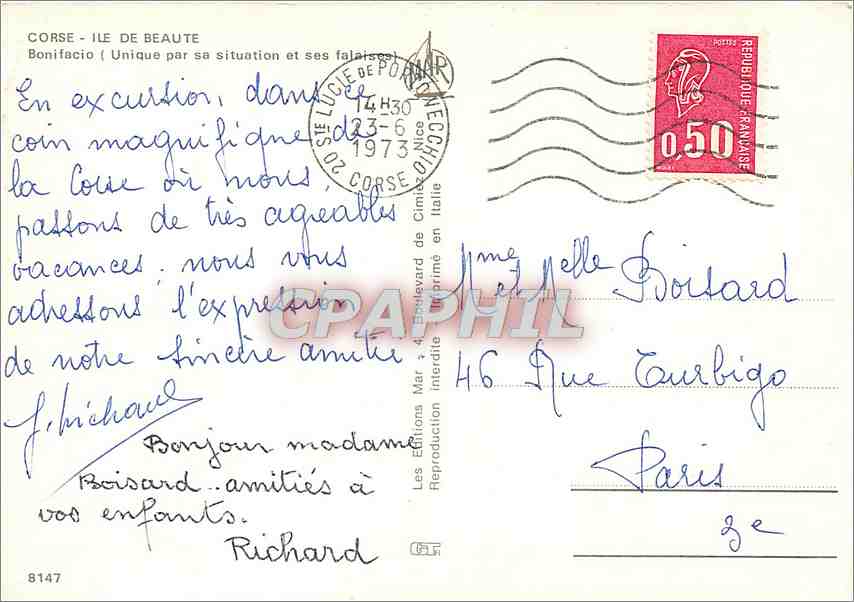 CORSE - ILE DE BEAUTE
Bonifacio ( Unique par sa situation et ses falaises)
En excursion, dans ce
coin magnifique de
la Corse où nous
passons de très agréables
vacances. nous vous
adressons l'expression
de notre sincère amitié
Bonjour madame
Boisard.. amitiés à
vos enfants.
Richard
8147
20 STE LUCIE DE PORTO VECCHIO
14H30
23-6
1973
CORSE
MAR
Les Editions Mar - 4, Boulevard de Cimiez - Nice
Reproduction interdite - Imprimé en Italie
POSTES
REPUBLIQUE FRANÇAISE
0,50
Mme et Melle Boisard
46 Rue Turbigo
Paris
3e
CPAPHIL